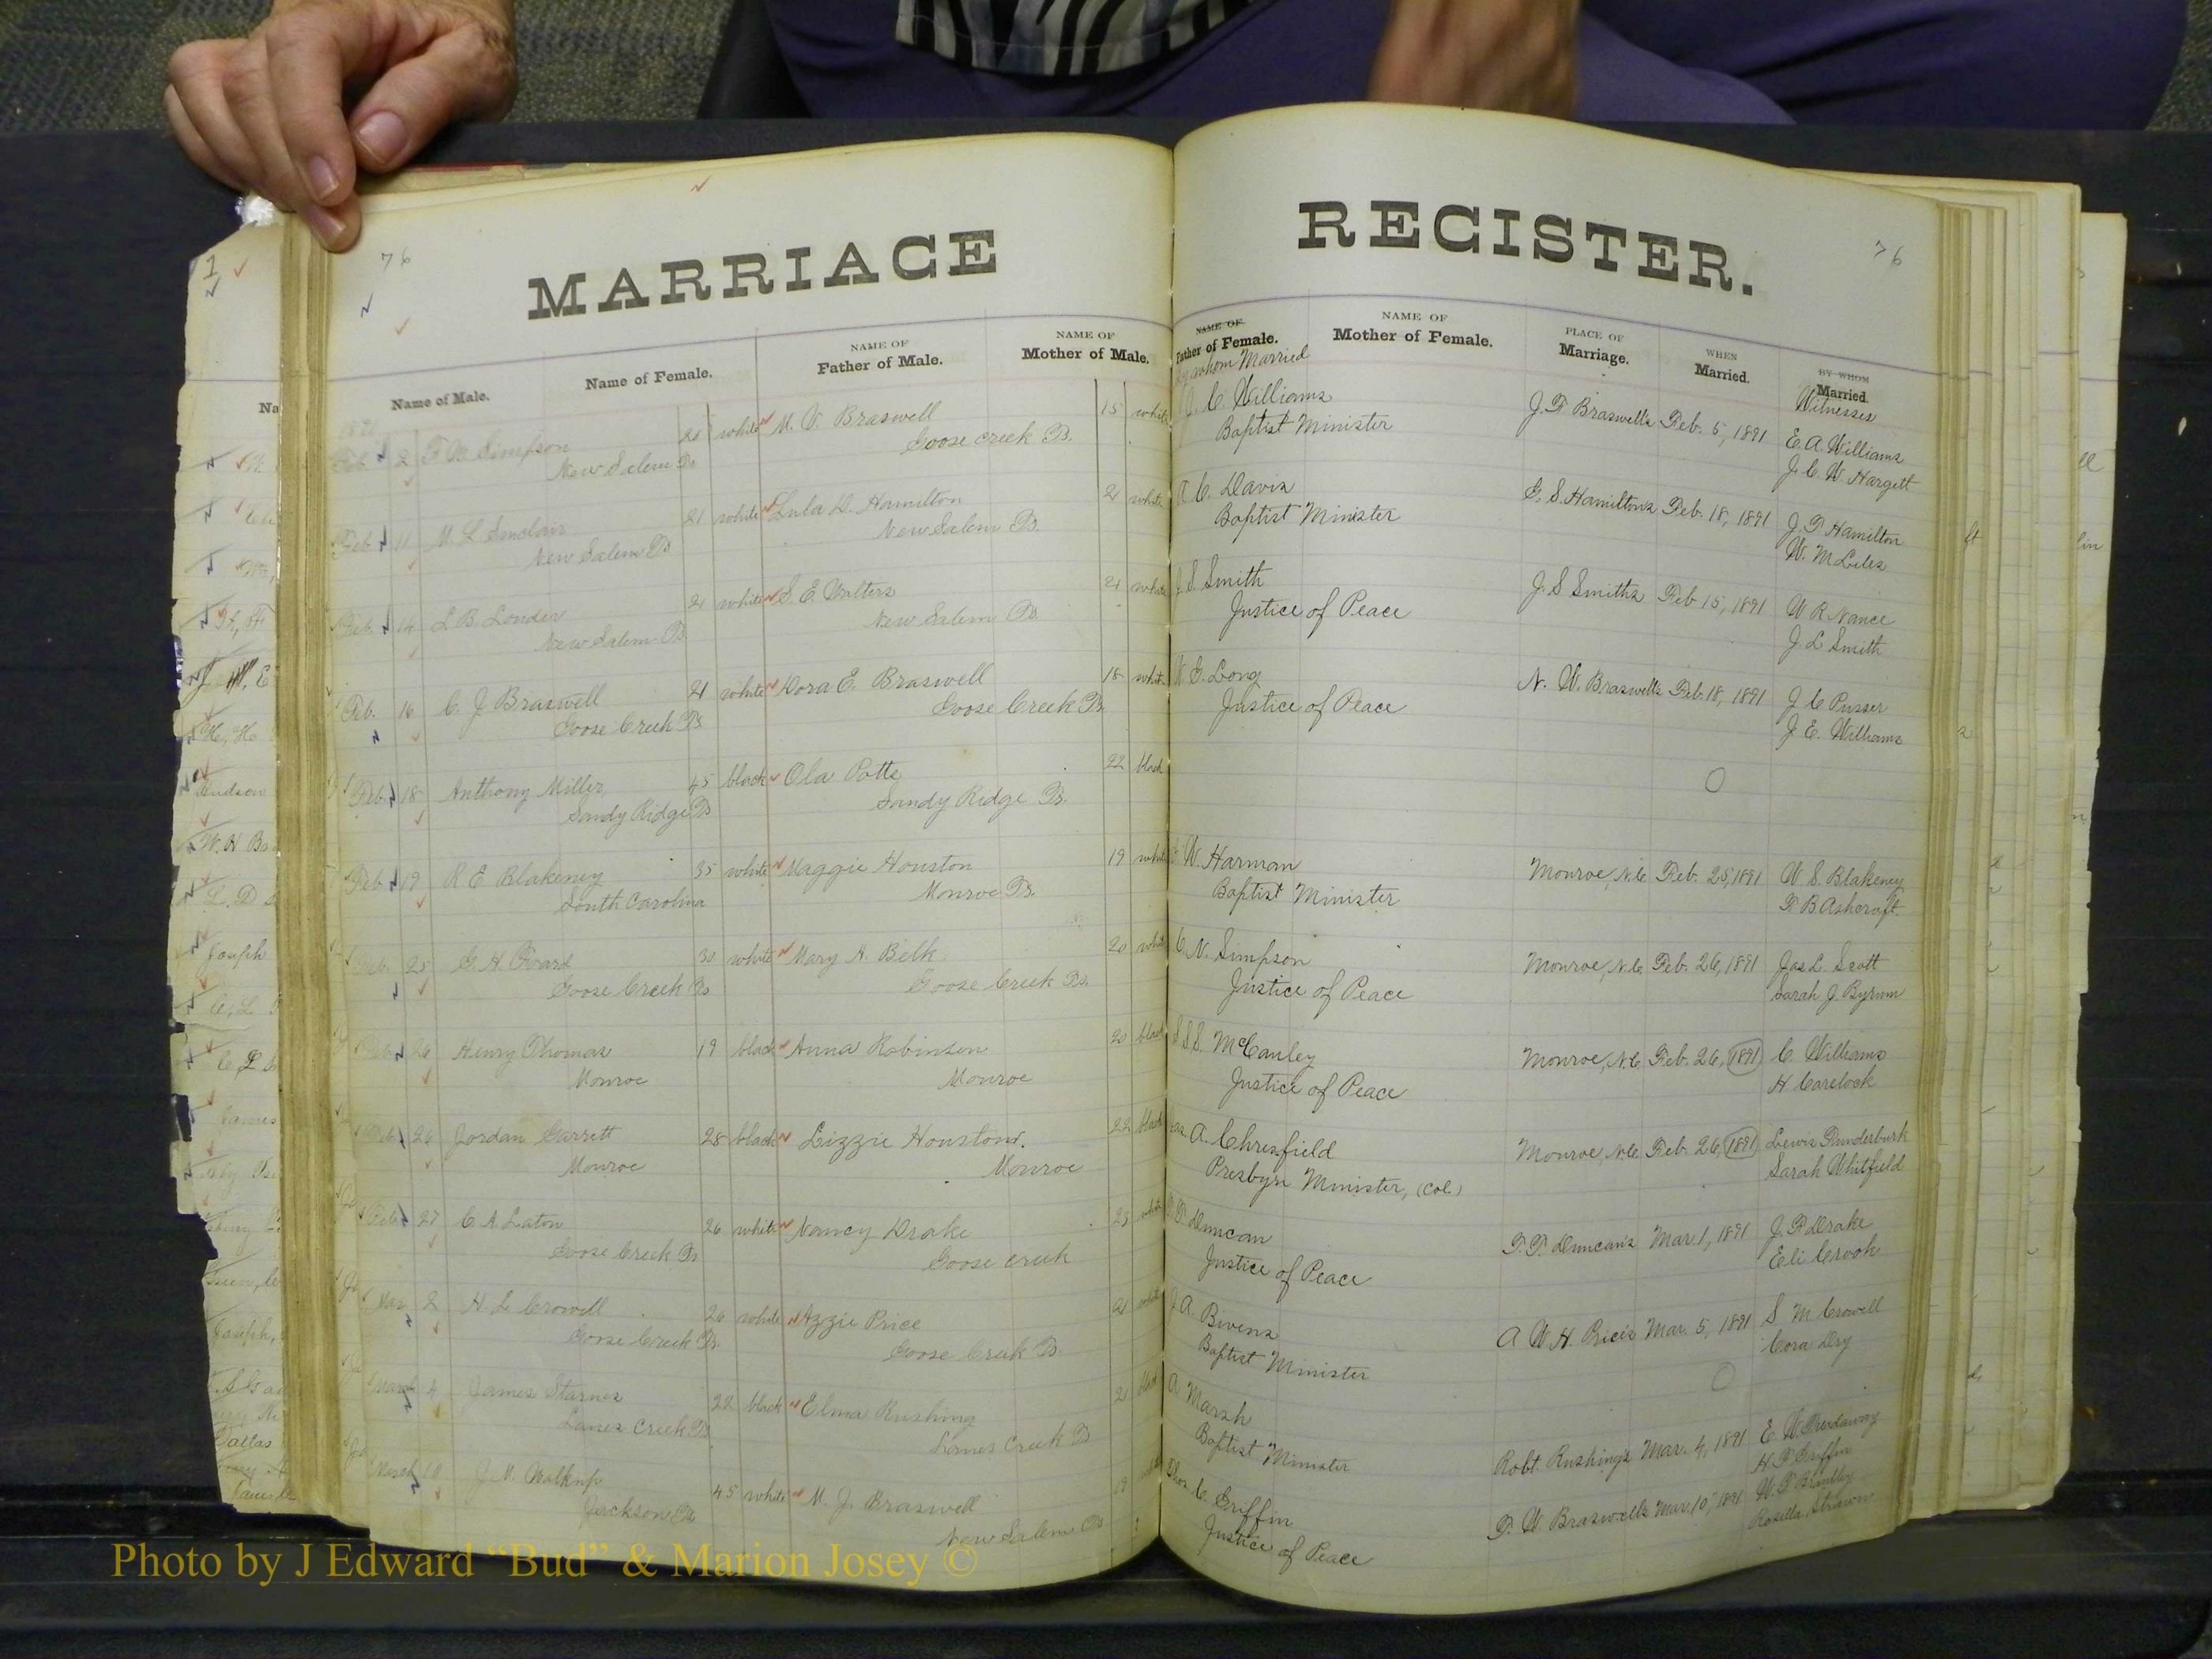 76
MARRIAGE
REGISTER.
76
Name of Male.
Name of Female.
NAME OF
Father of Male.
NAME OF
Mother of Male.
NAME OF
Father of Female.
By whom Married
NAME OF
Mother of Female.
PLACE OF
Marriage.
WHEN
Married.
BY WHOM
Married.
Witnesses
1891
Feb 2 F M Simpson 20 white M. V. Braswell 15 white J. C. Williams J. T Braswell's Feb. 5, 1891 E. A. Williams
New Salem Ts Goose creek Ts. Baptist Minister J. C. W. Hargett
Feb 11 M. L Sinclair 21 white Lula D. Hamilton 21 white A. C. Davis G. S. Hamilton's Feb. 18, 1891 J. T Hamilton
New Salem Ts New Salem Ts. Baptist Minister W. M Liles
Feb 14 L. B. Louder 21 white S. E. Walters 21 white J. S. Smith J. S Smith's Feb 15, 1891 W R Nance
New Salem Ts New Salem Ts. Justice of Peace J. L Smith
Feb. 16 C. J Braswell 21 white Dora E. Braswell 18 white W. G. Long N. W. Braswell's Feb. 18, 1891 J C Pusser
Goose Creek Ts Goose Creek Ts. Justice of Peace J. E. Williams
Feb. 18 Anthony Miller 45 black Ola Potts 22 black
Sandy Ridge Ts Sandy Ridge Ts.
Feb 19 R E Blakeney 35 white Maggie Houston 19 white W. Harman Monroe, N.C Feb. 25, 1891 W S. Blakeney
South Carolina Monroe Ts. Baptist Minister T B Ashcraft.
Feb. 25 G. H. 30 white Mary A. Belk 20 white C. N. Simpson Monroe, N.C. Feb. 26, 1891 Jas L. Scott
Goose Creek Ts Goose Creek Ts. Justice of Peace Sarah J. Byrum
Feb. 26 Henry Thomas 19 black Anna Robinson 20 black S. S. S. McCauley Monroe, N.C. Feb. 26, 1891 C. Williams
Monroe Monroe Justice of Peace H Carelock
Feb. 26 Jordan Garrett 28 black Lizzie Houston. 22 black A. Chresfield Monroe, N.C. Feb. 26, 1891 Lewis Funderburk
Monroe Monroe Presbyn Minister, (Col) Sarah Whitfield
Feb. 27 C. A. Laton 26 white Nancy Drake 23 white Duncan T. P. Duncan's Mar. 1, 1891 J. P Drake
Goose Creek Ts Goose creek Justice of Peace Eli Crook
Mar 2 H. L. Crowell 26 white Azzie Price 21 white J. A. Bivens A W. H. Price's Mar. 5, 1891 S M Crowell
Goose Creek Ts. Goose Creek Ts. Baptist Minister Cora Dry
March 4 James Starnes 22 black Elma Rushing 21 black A Marsh Robt. Rushing's Mar. 4, 1891 E. W.
Lanes Creek Ts Lanes Creek Ts Baptist Minister H. P Griffin
March 10 J. M. Walkup 45 white M. J. Braswell 19 Thos. C. Griffin T. W Braswell's Mar. 10, 1891
Jackson Ts New Salem Ts Justice of Peace
Photo by J Edward “Bud” & Marion Josey ©